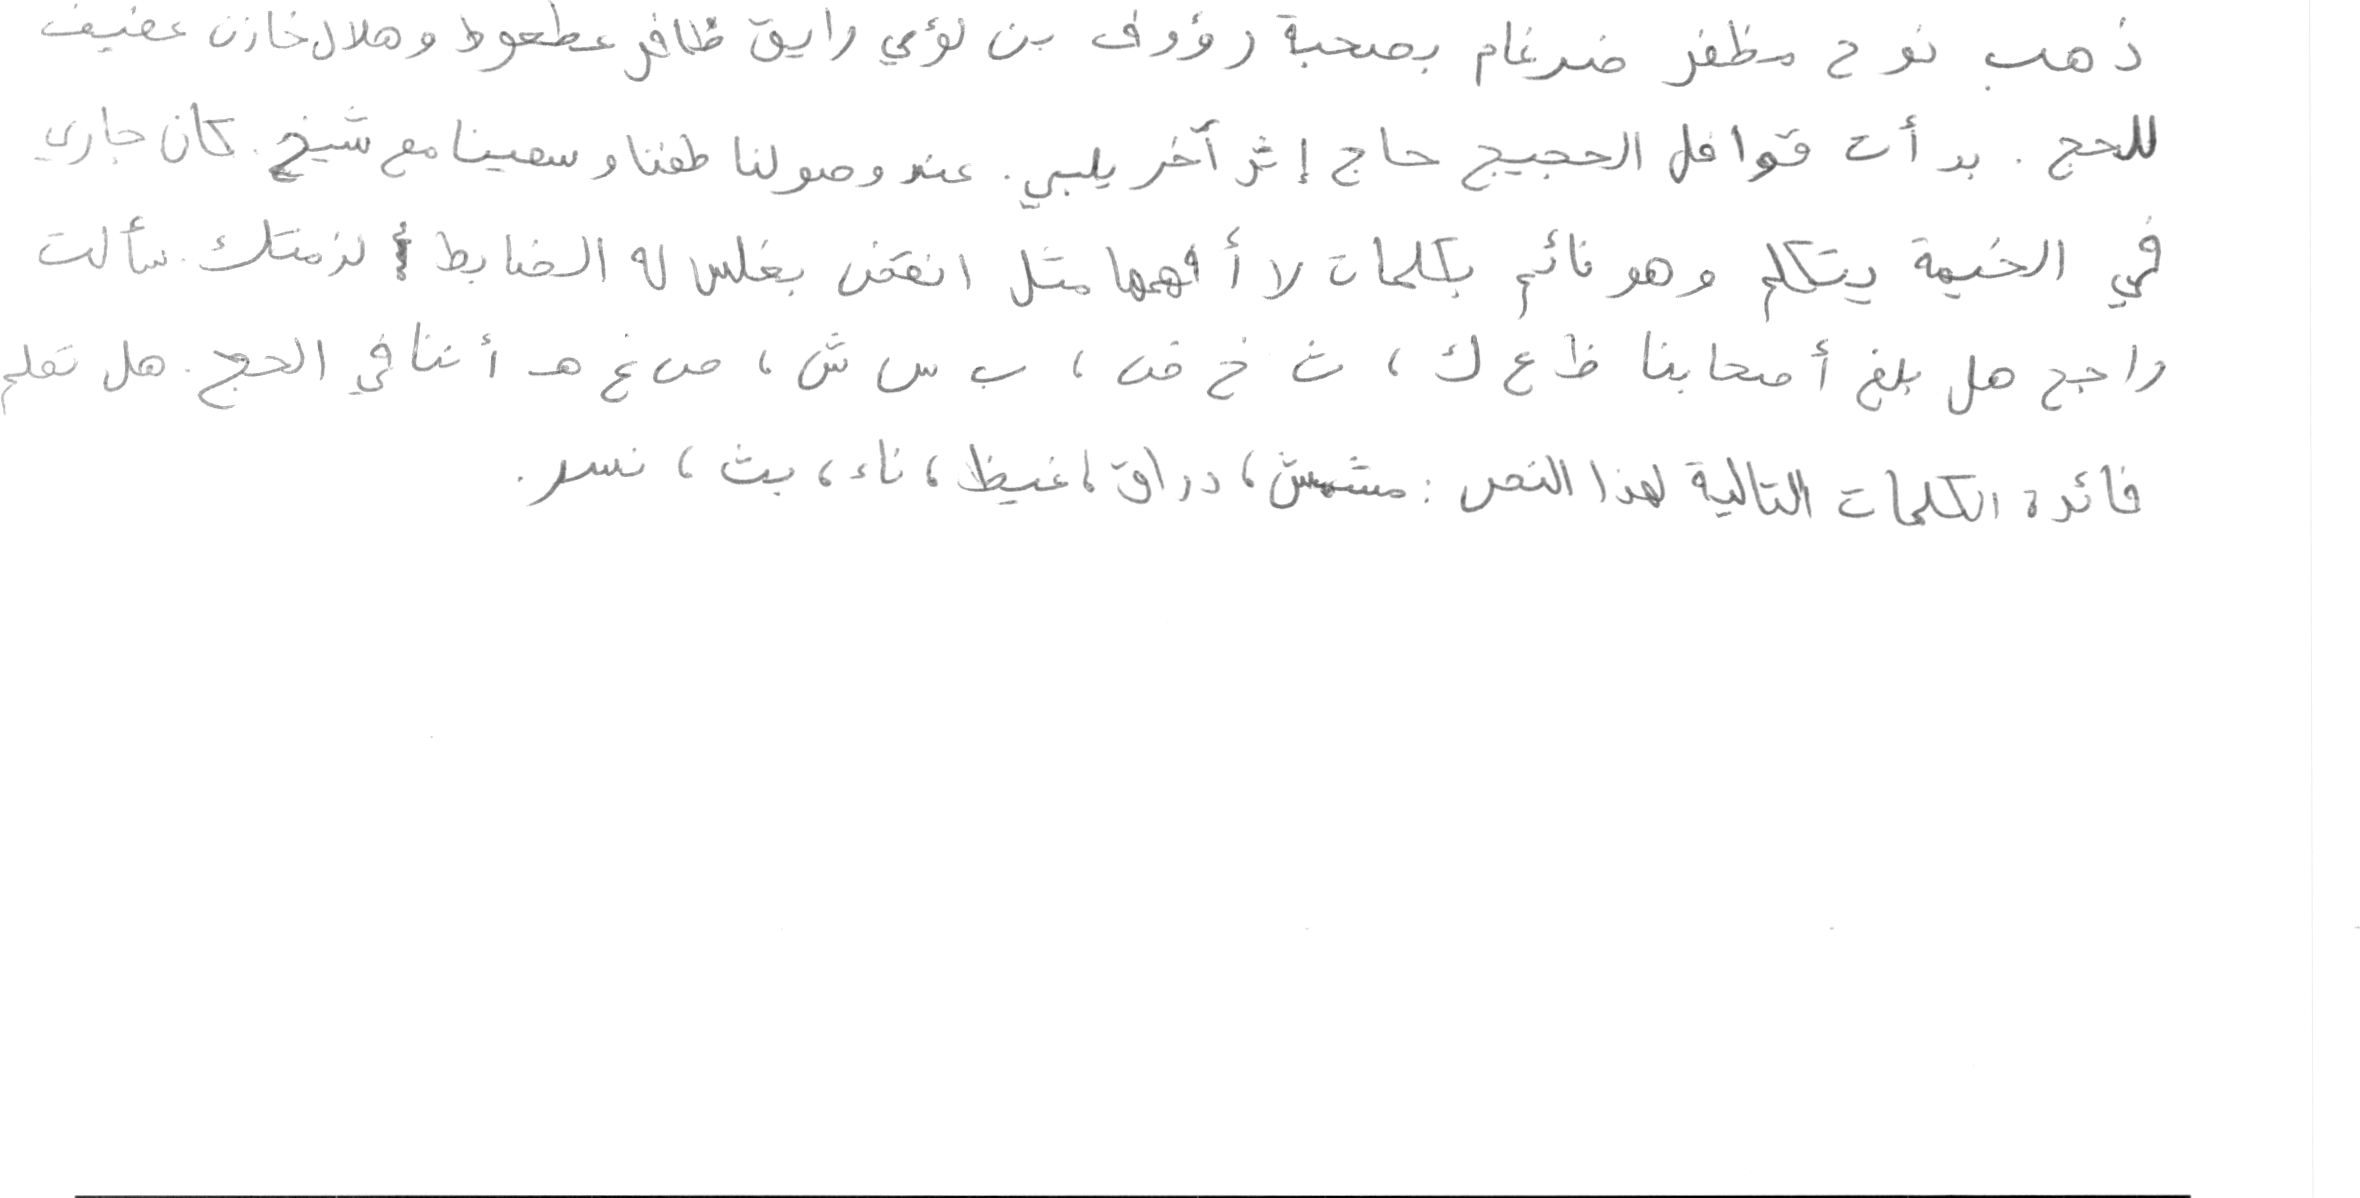 ذهب نوح مظفر ضرغام بصحبة رؤوف بن لؤي رايق ظافر عطعوط وهلال خازن عفيف
للحج . بدأت قوافل الحجيج حاج إثر آخر يلبي . عند وصولنا طفنا وسعينا مع شيخ . كان جاري
في الخيمة يتكلم وهو نائم بكلمات لا أفهمها مثل انقض بغلس له الضابط لذمتك . سألت
راجح هل بلغ أصحابنا ظ ع ك ، ث خ ض ، ب س ش ، ص غ هـ أننا في الحج . هل تعلم
فائدة الكلمات التالية لهذا النص : مشمش ، دراق ، غيظ ، ناء ، بث ، نسر .